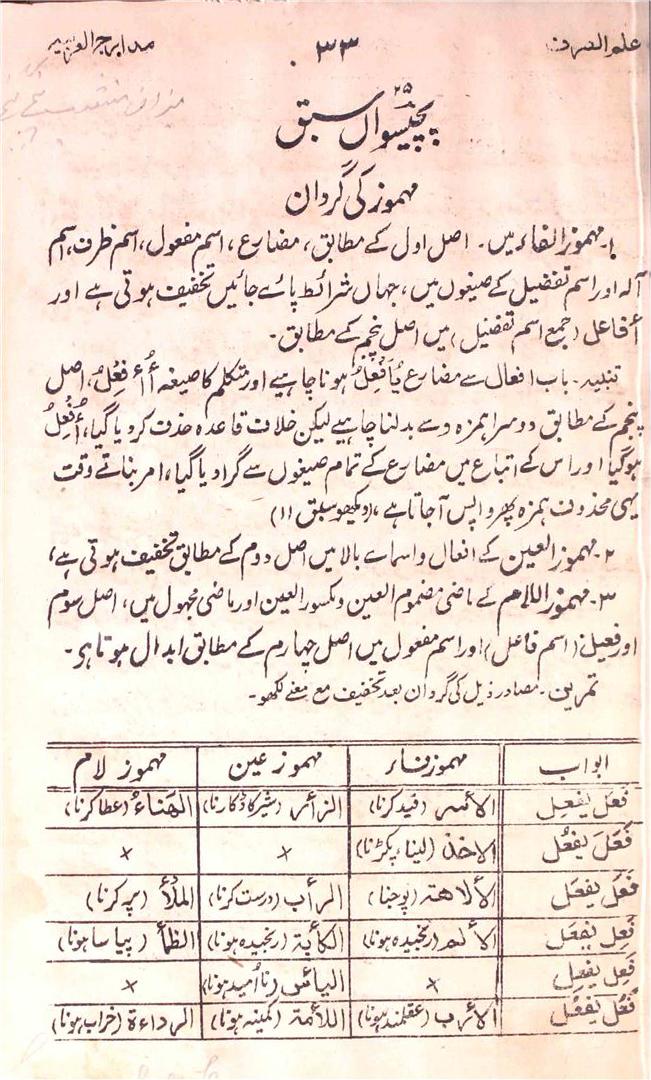 علم الصرف ۳۳
۲۵
پچیسواں سبق
مہموز کی گردان
۱۔ مہموز الفاء میں۔ اصل اول کے مطابق، مضارع، اسم مفعول، اسم ظرف، اسم
آلہ اور اسم تفضیل کے صیغوں میں، جہاں شرائط پائے جائیں تخفیف ہوتی ہے اور
أفاعل (جمع اسم تفضیل) میں اصل پنجم کے مطابق۔
تنبیہ۔ باب افعال سے مضارع يُأَفْعِلُ ہونا چاہیے اور متکلم کا صیغہ أُأَفْعِلُ، اصل
پنجم کے مطابق دوسرا ہمزہ و سے بدلنا چاہیے لیکن خلاف قاعدہ حذف کر دیا گیا، أُفْعِلُ
ہو گیا اور اس کے اتباع میں مضارع کے تمام صیغوں سے گرا دیا گیا، امر بناتے وقت
یہی محذوف ہمزہ پھر واپس آجاتا ہے، (دیکھو سبق ۱۱)
۲۔ مہموز العین کے افعال و اسماے بالا میں اصل دوم کے مطابق تخفیف ہوتی ہے،
۳۔ مہموز اللام کے ماضی مضموم العین و مکسور العین اور ماضی مجہول میں، اصل سوم
اور فعیل (اسم فاعل) اور اسم مفعول میں اصل چہارم کے مطابق ابدال ہوتا ہے۔
تمرین۔ مصادر ذیل کی گردان بعد تخفیف مع معنے لکھو۔
ابواب مہموز فاء مہموز عین مہموز لام
فَعَلَ يَفْعِلُ الأسر (قید کرنا) الزائر (شیر کا ڈکارنا) الهَناءُ (عطا کرنا)
فَعَلَ يَفْعُلُ الاخذ (لینا، پکڑنا) × ×
فَعَلَ يَفْعَلُ الألاهة (پوجنا) الرأب (درست کرنا) الملأ (پر کرنا)
فَعِلَ يَفْعَلُ الألم (رنجیدہ ہونا) الكآبة (رنجیدہ ہونا) الظمأ (پیاسا ہونا)
فَعِلَ يَفْعِلُ × اليأس (نا امید ہونا) ×
فَعُلَ يَفْعُلُ الأرب (عقلمند ہونا) اللآمة (کمینہ ہونا) الرداءة (خراب ہونا)